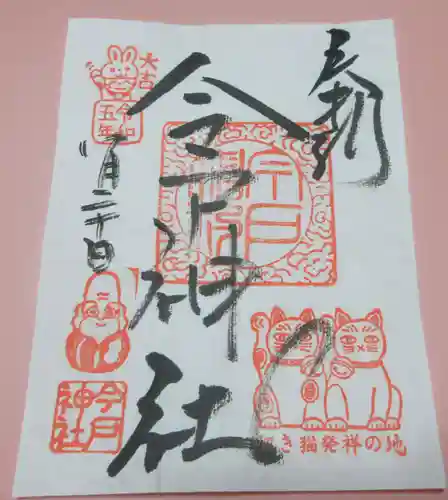 奉拝
今戸神社
大吉
令和
五年
一月二十日
今戸
神社
招き猫発祥の地